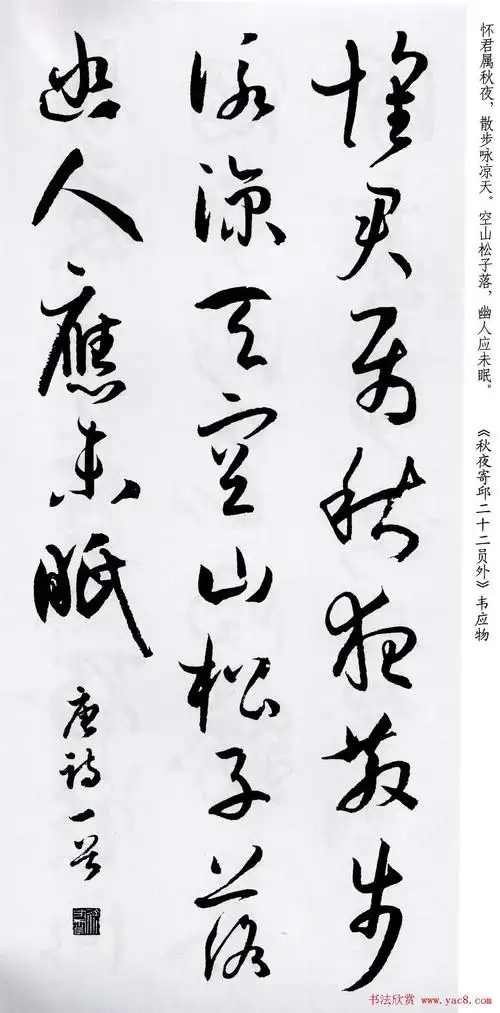 怀君属秋夜，散步咏凉天。空山松子落，幽人应未眠。
《秋夜寄邱二十二员外》韦应物
懷君属秋夜散步
詠涼天空山松子落
幽人應未眠
唐詩一首
书法欣赏 www.yac8.com